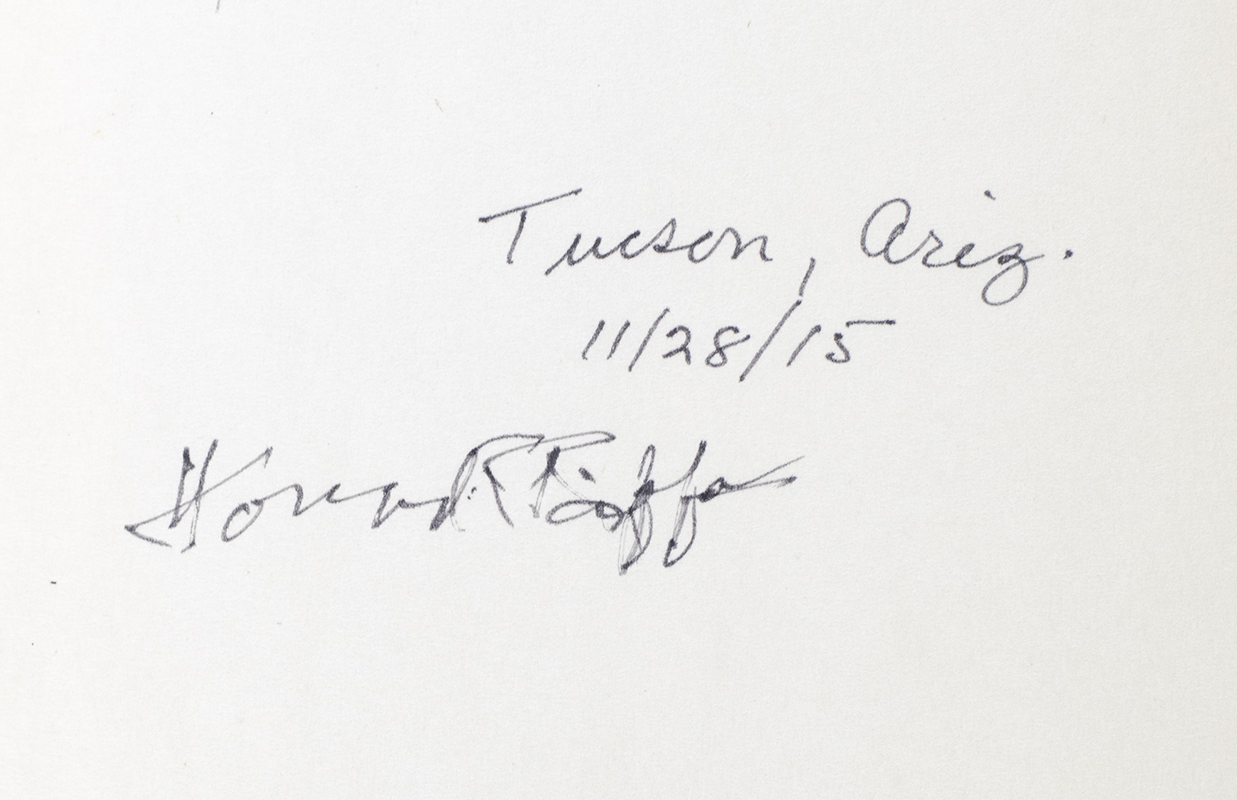 Tucson, Ariz.
11/28/15
Howard